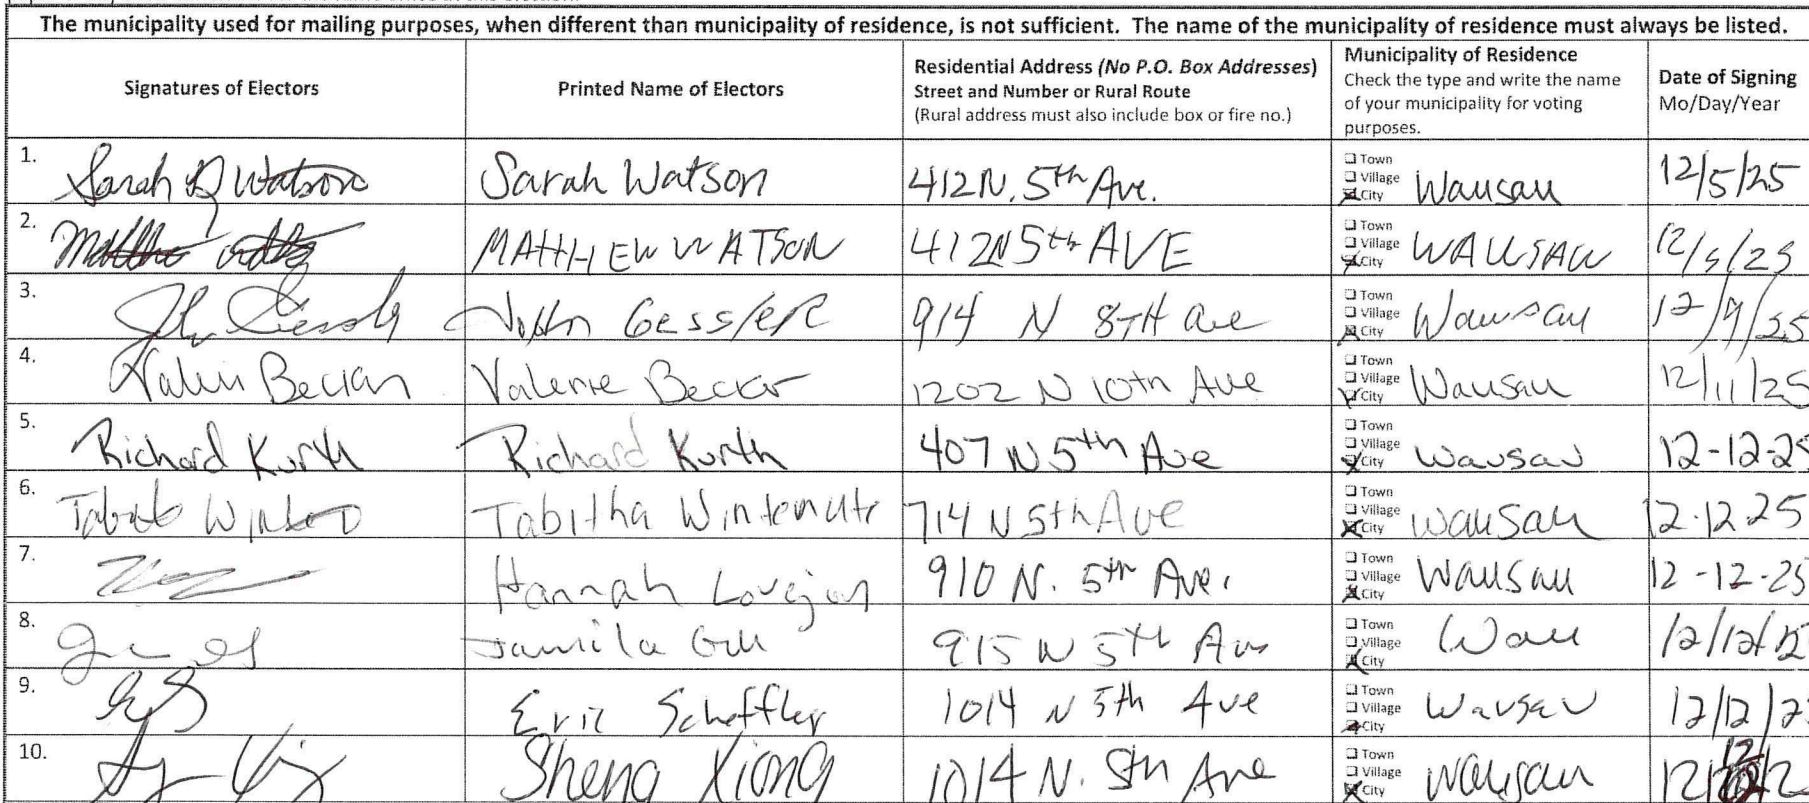 The municipality used for mailing purposes, when different than municipality of residence, is not sufficient. The name of the municipality of residence must always be listed.
Signatures of Electors
Printed Name of Electors
Residential Address (No P.O. Box Addresses)
Street and Number or Rural Route
(Rural address must also include box or fire no.)
Municipality of Residence
Check the type and write the name
of your municipality for voting
purposes.
Date of Signing
Mo/Day/Year
1. Sarah D Watson Sarah Watson 412 N. 5th Ave. Town Village City Wausau 12/5/25
2. MATTHEW WATSON 412 N 5th AVE Town Village City WAUSAU 12/5/25
3. John Gessler 914 N 8TH ave Town Village City Wausau 12/9/25
4. Valerie Becker 1202 N 10th Ave Town Village City Wausau 12/11/25
5. Richard Kurth Richard Kurth 407 N 5th Ave Town Village City Wausau 12-12-25
6. Tabitha Wintemute 714 N 5th Ave Town Village City Wausau 12.12 25
7. Hannah Lovejoy 910 N. 5th Ave. Town Village City Wausau 12-12-25
8. Jamila Gill 915 N 5th Ave Town Village City Wau 12/12/2
9. Eric Scheffler 1014 N 5th Ave Town Village City Wausau 12/12/2
10. Sheng Xiong 1014 N. 5th Ave Town Village City Wausau